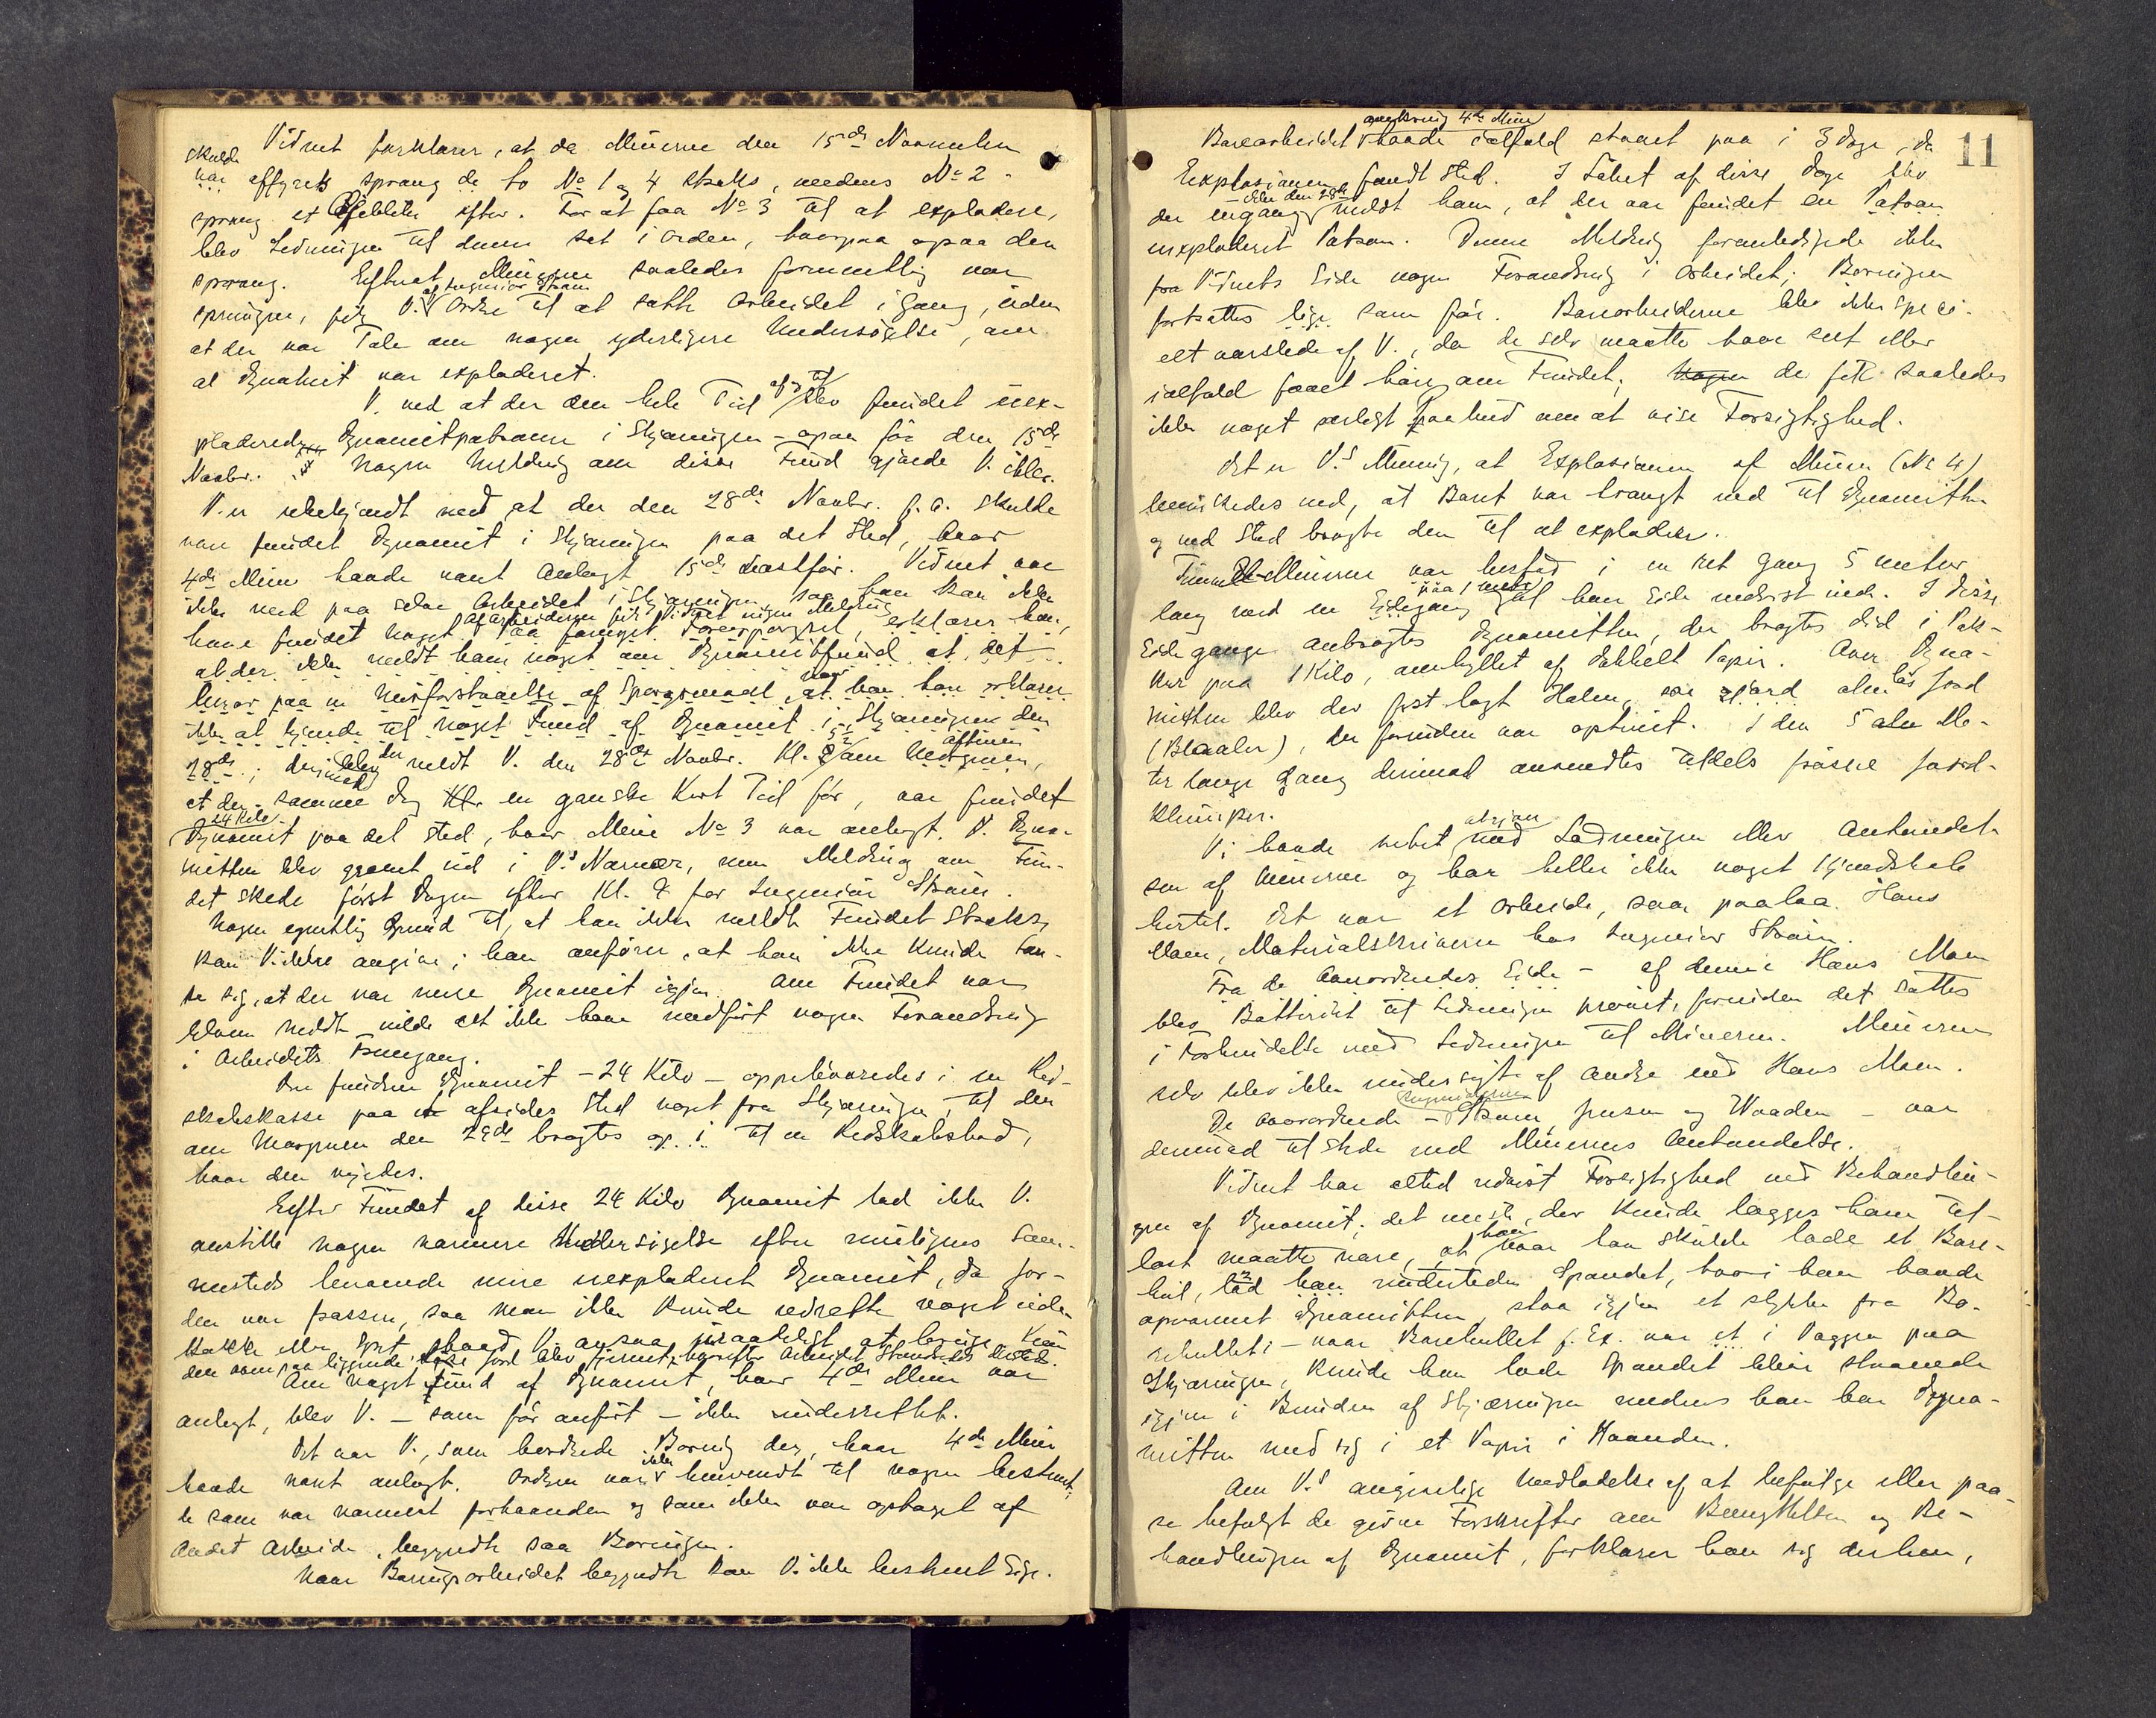 Vidnet forklarer, at da Minerne den 15de November
skulde
var affyrets sprang de to No 1 og 4 straks, medens No 2
sprang et Øieblik efter. For at faa No 3 til at explodere,
blev Ledningen til denne sat i Orden, hvorpaa ogsaa den
sprang. Efterat Minerne saaledes formentlig var
af Ingeniør Strøm
sprungne, fik V. Ordre til at sætte Arbeidet i Gang, uden
at der var Tale om nogen yderligere Undersøgelse, om
al Dynamit var exploderet.
V. ved at der den hele Tid af og til blev fundet uex-
ploderede Dynamitpatroner i Skjæringen - ogsaa før den 15de
Novbr. Nogen Melding om disse Fund gjorde V. ikke.
V. er ubekjendt med at der den 28de Novbr. f. A. skulde
være fundet Dynamit i Skjæringen paa det Sted, hvor
4de Mine havde været anlagt 15de næstfør. Vidnet var
ikke med paa selve Arbeidet i Skjæringen, saa han kan ikke
af Arbeiderne fik Vidnet ingen Melding
have fundet noget. Paa foreiget Forespørgsel, erklærer han,
at der ikke meldt ham noget om Dynamitfund at det
beror paa en Misforstaaelse af Spørgsmaalet, naar han har erklæret
ikke at kjende til noget Fund af Dynamit i Skjæringen den
28de; derimod blev der meldt V. den 28de Novbr. Kl. 5 1/2 om Aftenen
at der samme Dag en ganske kort Tid før, var fundet
24 Kilo
Dynamit paa det Sted, hvor Mine No 3 var anlagt. Dyna-
mitten blev gravet ud i V.s Nærvær, men Melding om Fun-
det skede først Dagen efter Kl. 9 for Ingeniør Strøm.
Nogen egentlig Grund til, at han ikke meldte Fundet straks,
kan V. ikke angive; han anfører, at han ikke kunde tæn-
ke sig, at der var mere Dynamit igjen. Om Fundet var
bleven meldt vilde det ikke have medført nogen Forandring
i Arbeidets Fremgang.
Den fundne Dynamit - 24 Kilo - opbevaredes i en Red-
skabskasse paa et afsides Sted noget fra Skjæringen, til den
om Morgenen den 29de bragtes op til en Redskabsbod,
hvor den veiedes.
Efter Fundet af disse 24 Kilo Dynamit lod ikke V.
anstille nogen nærmere Undersøgelse efter muligens sam-
mesteds beroende mere uexploderet Dynamit, da Jor-
den var frossen, saa man ikke kunde udrette noget uden
Hakke eller Spet, hvad V. ansaa utilraadeligt at bruge. Kun
den ovenpaa liggende løse Jord blev fjernet, hvorefter Arbeidet standsedes dersteds.
Om noget Fund af Dynamit, hvor 4de Mine var
anlagt, blev V. - som før anført - ikke underrettet.
Det var V., som beordrede Boring der, hvor 4de Mine
havde været anlagt. Ordren var ikke henvendt til nogen bestemt;
de som var nærmest forhaanden og som ikke var optaget af
andet Arbeide, begyndte saa Boringen.
Naar Boringsarbeidet begyndte kan V. ikke bestemt sige.
11
omkring 4de Mine
Borearbeidet havde ialfald staaet paa i 3 Dage, da
Explosionen fandt Sted. I Løbet af disse Dage blev
- ikke den 28de -
der engang meldt ham, at der var fundet en Patron
uexploderet Patron. Denne Melding foranledigede ikke
fra Vidnets Side nogen Forandring i Arbeidet; Boringen
fortsattes lige som før. Borearbeiderne blev ikke speci-
elt varslede af V., da de selv maatte have seet eller
ialfald faaet høre om Fundet; de fik saaledes
ikke noget særligt Paabud om at vise Forsigtighed.
Det er V.s Mening, at Explosionen af Minen (No 4)
bevirkedes ved, at Boret var trængt ned til Dynamitten
og ved Stød bragte den til at explodere.
Minerne var bestod i en ret Gang 5 Meter
paa 1 Meter
lang med en Sidegang til hver Side nederst inde. I disse
Sidegange anbragtes Dynamitten, der bragtes did i Pak-
ker paa 1 Kilo, omhyllet af dobbelt Papir. Over Dyna-
mitten blev der først lagt Halm, saa løs Jord
(Blaaler), der foruden var optinet. I den 5 Me-
ter lange Gang derimod anvendtes tildels frosne Jord-
klumper.
V. havde intet at gjøre med Ladningen eller Antændel-
sen af Minerne og har heller ikke noget Kjendskab
hertil. Det var et Arbeide, som paalaa Hans
Moen, Materialskriveren hos Ingeniør Strøm.
Fra de Overordnedes Side - af denne Hans Moen
blev Batteriet til Ledningen prøvet, forinden det sattes
i Forbindelse med Ledningen til Minerne. Minerne
selv blev ikke undersøgte af andre end Hans Moen.
Ingeniørerne
De overordnede - Strøm, Jensen og Waaden - var
dennegang til Stede ved Minernes Antændelse.
Vidnet har altid udvist Forsigtighed ved Behandlin-
gen af Dynamit; det meste, der kunde lægges ham til
last maatte være, at naar han skulde lade et Bore-
hul, lod han undertiden Spandet, hvori han havde
opvarmet Dynamitten, staa igjen et Stykke fra Bo-
rehullet; - naar Borehullet f. Ex. var et i Væggen paa
Skjæringen, kunde han lade Spandet blive staaende
igjen i Bunden af Skjæringen medens han bar Dyna-
mitten med sig i et Papir i Haanden.
Om V.s angivelige Undladelse af at befølge eller paa-
se befulgt de givne Forskrifter om Benyttelsen og Be-
handlingen af Dynamit, forklarer han sig derhen,